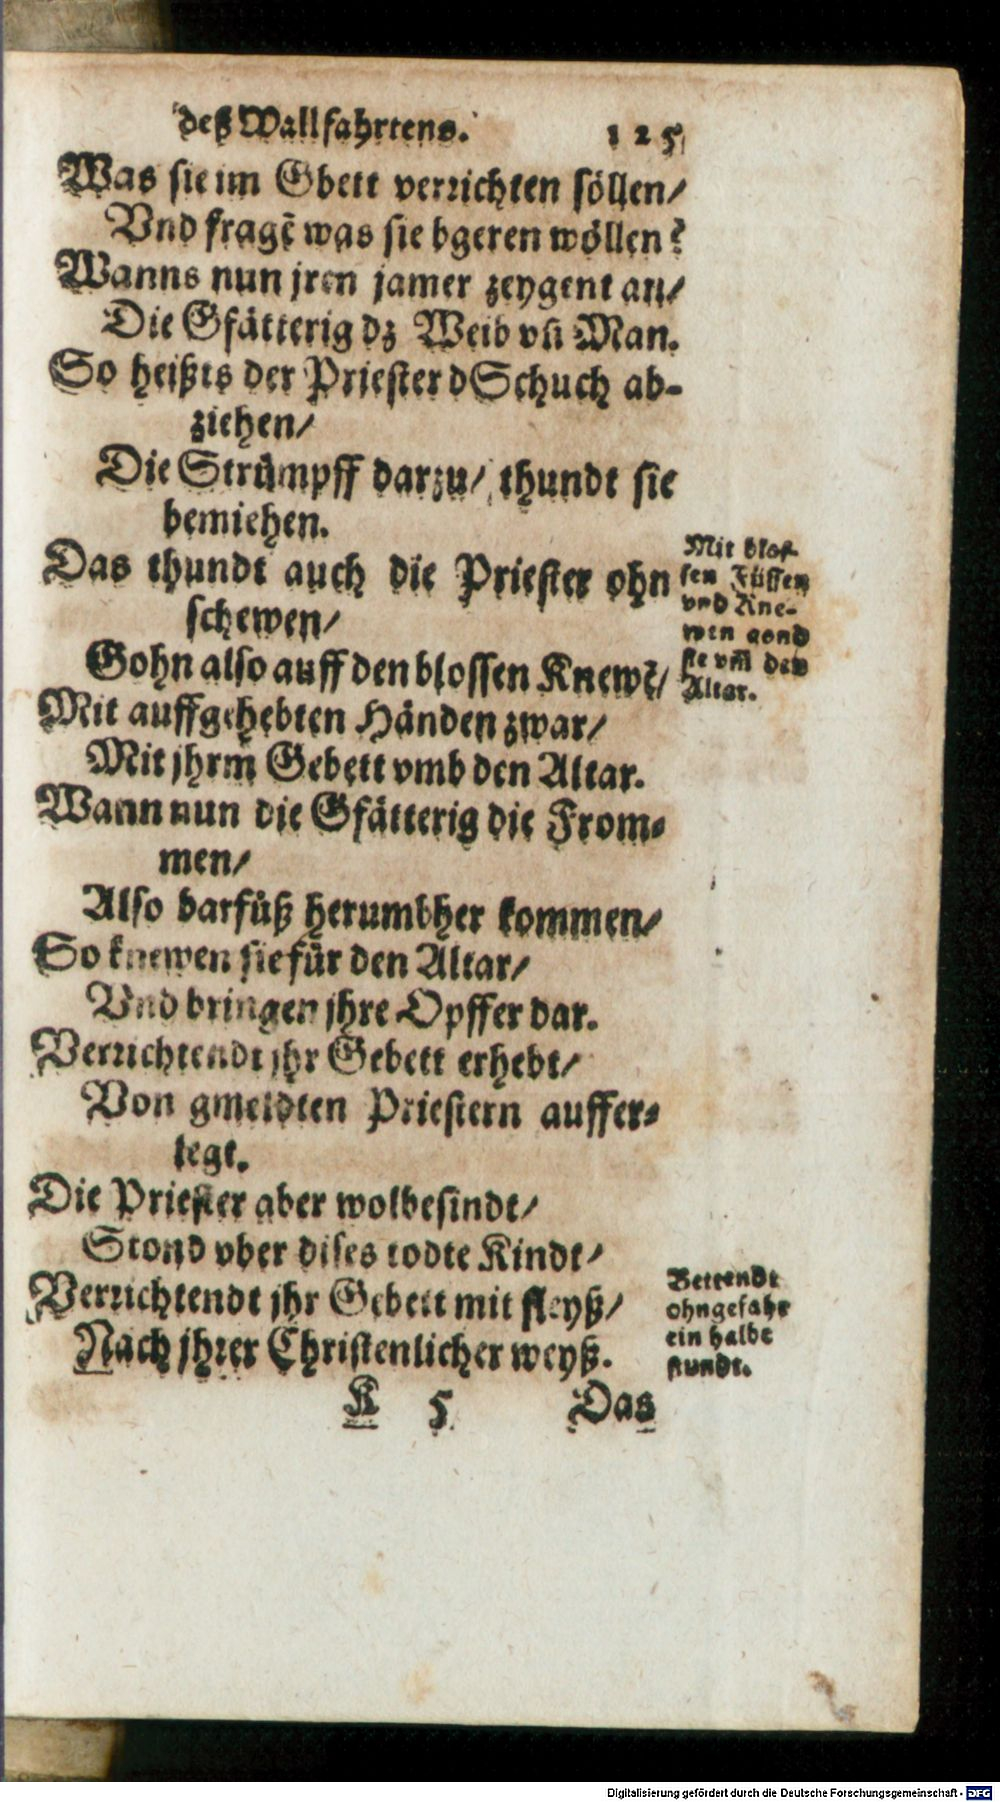 deß Wallfahrtens. 125
Was sie im Gbett verrichten söllen/
Vnd fragẽ was sie bgeren wöllen?
Wanns nun jren jamer zeygent an/
Die Gfätterig dz Weib vñ Man.
So heißts der Priester dSchuch ab-
ziehen/
Die Strümpff darzu/ thundt sie
bemiehen.
Das thundt auch die Priester ohn
schewen/
Gohn also auff den blossen Knewẽ/
Mit auffgehebten Händen zwar/
Mit jhrm Gebett vmb den Altar.
Wann nun die Gfätterig die From-
men/
Also barfüß herumbher kommen/
So knewen sie für den Altar/
Vnd bringen jhre Opffer dar.
Verrichtendt jhr Gebett erhebt/
Von gmeldten Priestern auffer-
legt.
Die Priester aber wolbesindt/
Stond vber dises todte Kindt/
Verrichtendt jhr Gebett mit fleyß/
Nach jhrer Christenlicher weyß.
K 5 Das
Mit blos-
sen Füssen
vnd Kne-
wen gond
sie vm̃ den
Altar.
Bettendt
ohngefahr
ein halbe
stundt.
Digitalisierung gefördert durch die Deutsche Forschungsgemeinschaft - DFG